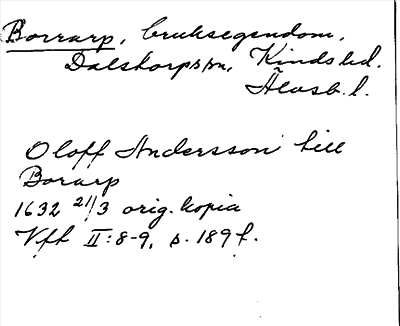 Borrarp, bruksegendom,
Dalstorps sn, Kinds hd.
Älvsb. l.
Oloff Andersson till
Borarp
1632 21/3 orig. kopia
Vft II:8-9, s. 189 f.